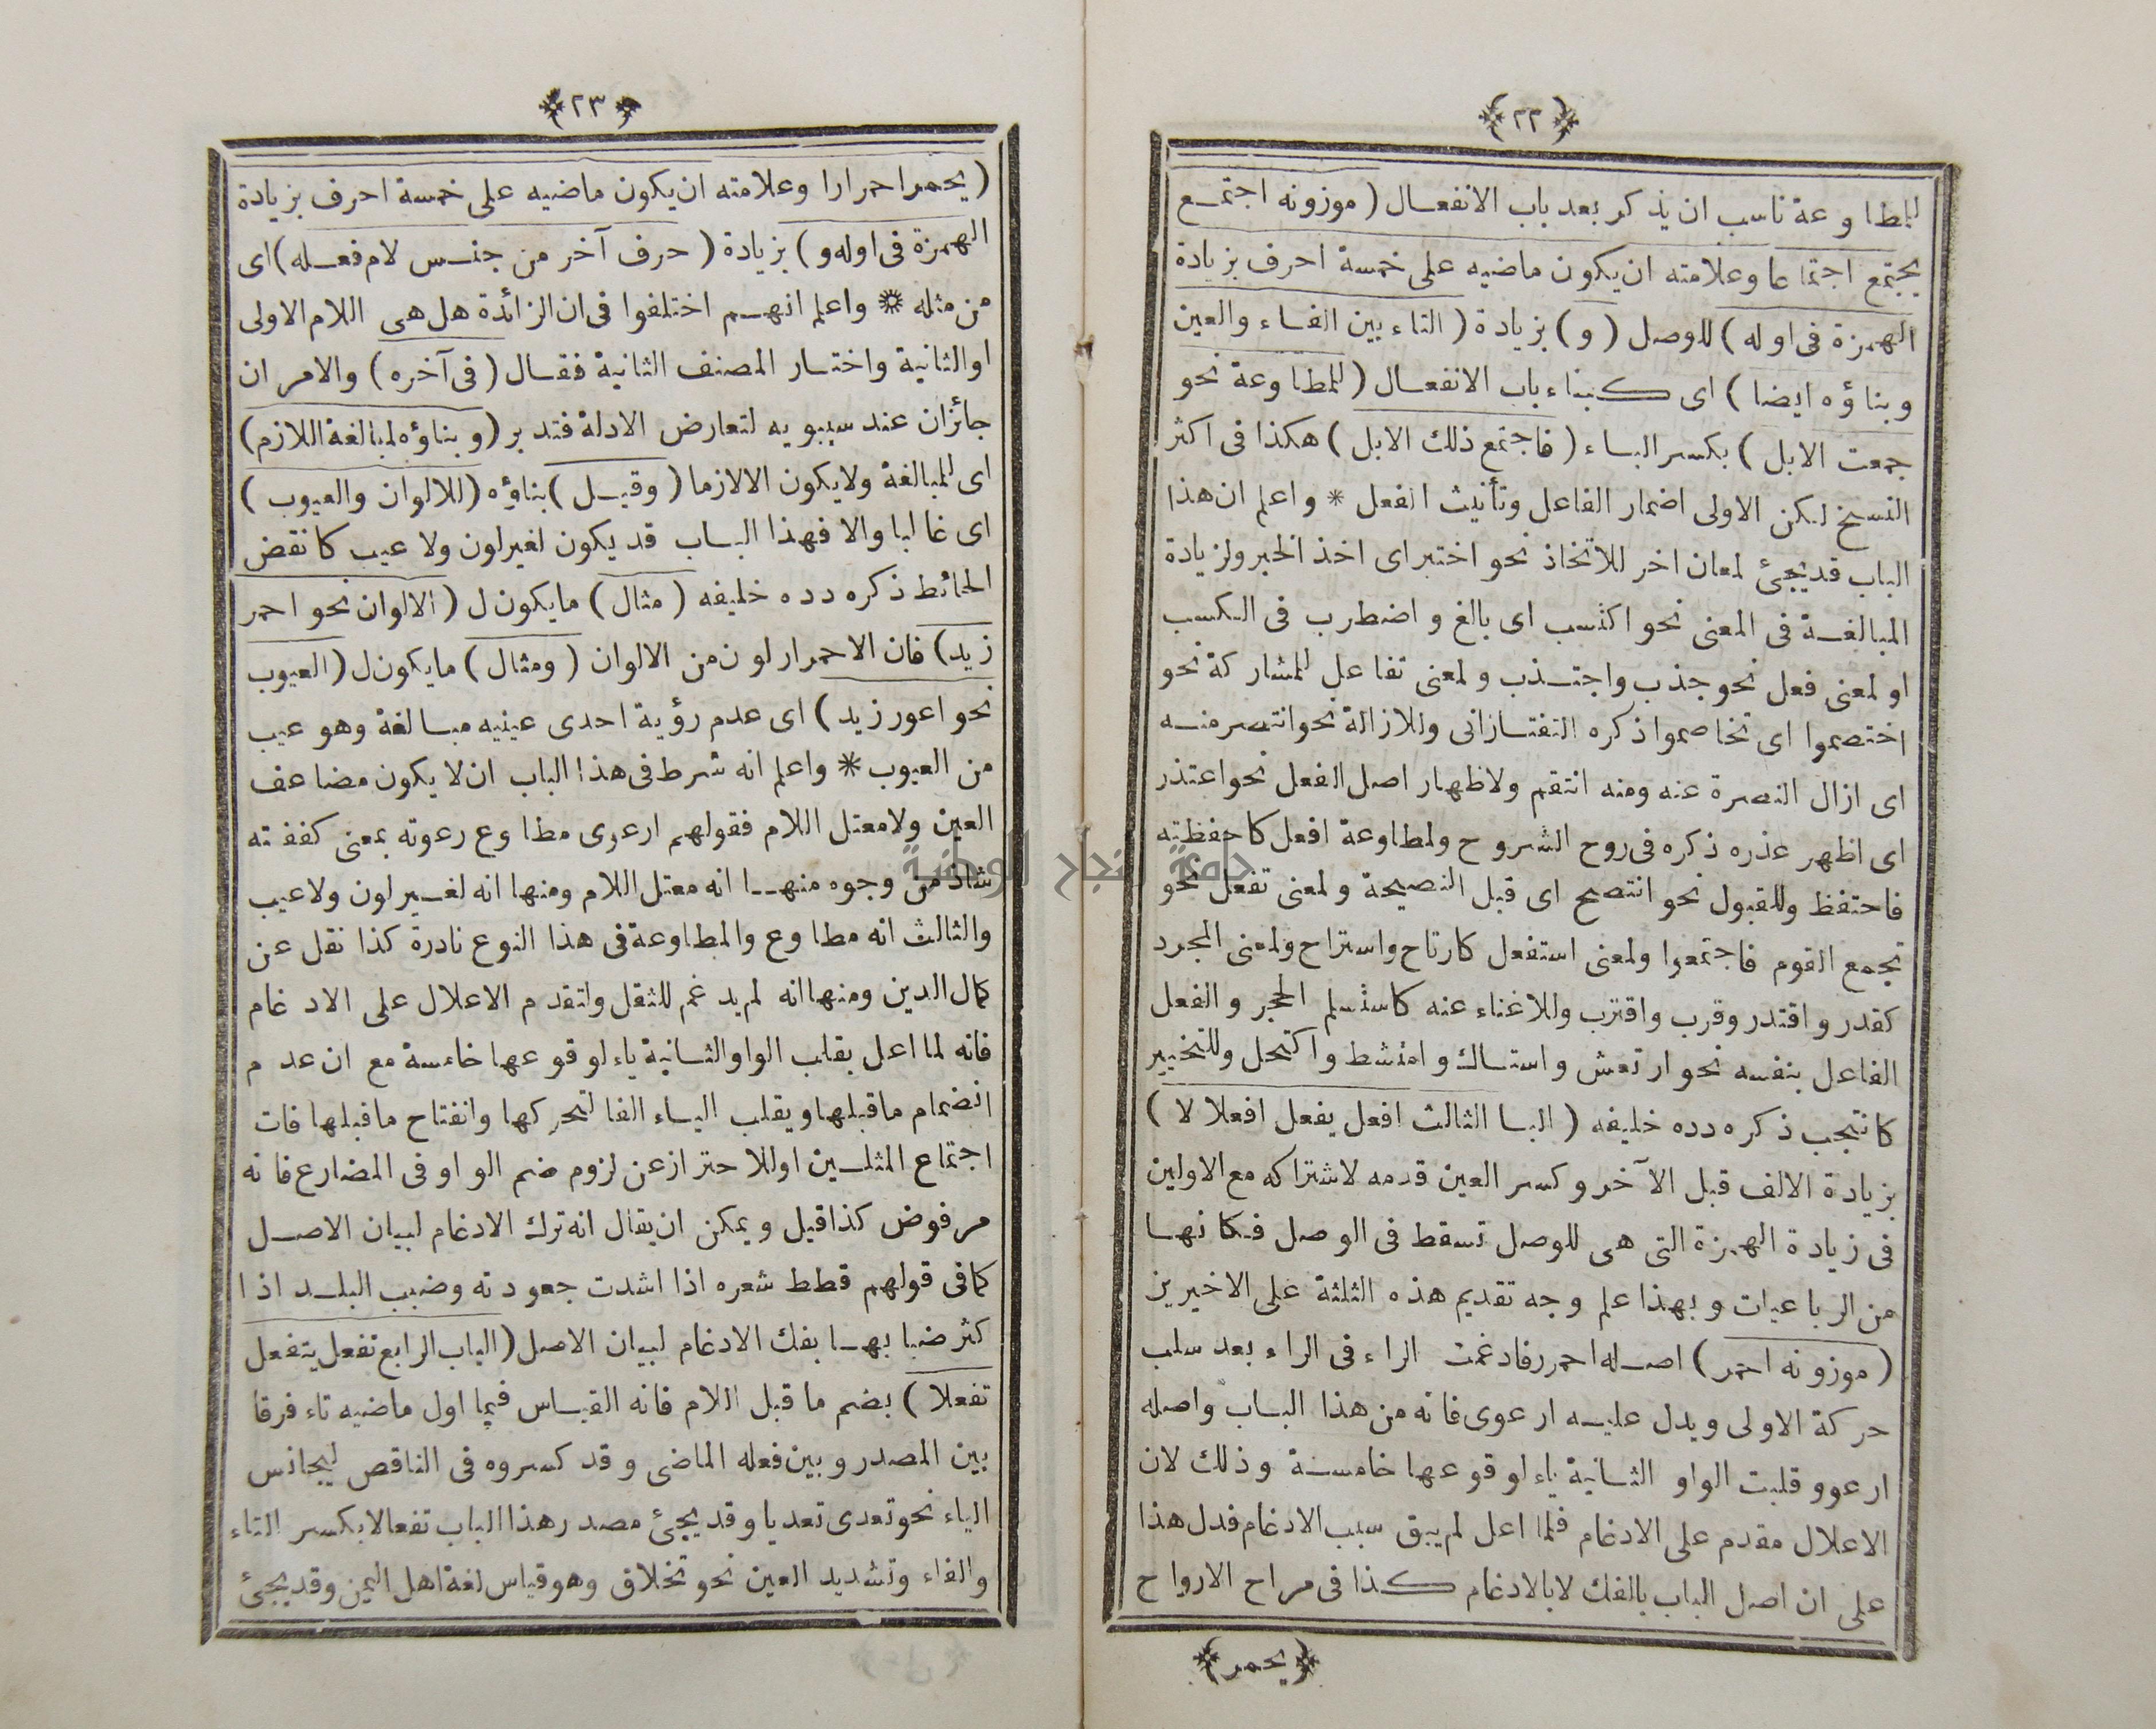 ﴿٢٢﴾
للمطاوعة ناسب ان يذكر بعد باب الانفعال (موزونه اجتمع
يجتمع اجتماعا وعلامته ان يكون ماضيه على خمسة احرف بزيادة
الهمزة فى اوله) للوصل (و) بزيادة (التاء بين الفاء والعين
وبناؤه ايضا) اى كبناء باب الانفعال (للمطاوعة نحو
جمعت الابل) بكسر الباء (فاجتمع ذلك الابل) هكذا فى اكثر
النسخ لكن الاولى اضمار الفاعل وتأنيث الفعل * واعلم ان هذا
الباب قد يجئ لمعان اخر للاتخاذ نحو اختبر اى اخذ الخبر ولزيادة
المبالغة فى المعنى نحو اكتسب اى بالغ واضطرب فى الكسب
او لمعنى فعل نحو جذب واجتذب ولمعنى تفاعل للمشاركة نحو
اختصموا اى تخاصموا ذكره التفتازانى وللازالة نحو انتصر منه
اى ازال النصرة عنه ومنه انتقم ولاظهار اصل الفعل نحو اعتذر
اى اظهر عذره ذكره فى روح الشروح ولمطاوعة افعل كاحفظته
فاحتفظ وللقبول نحو انتصح اى قبل النصيحة ولمعنى تفعل نحو
تجمع القوم فاجتمعوا ولمعنى استفعل كارتاح واستراح ولمعنى المجرد
كقدر واقتدر وقرب واقترب وللاغناء عنه كاستلم الحجر والفعل
الفاعل بنفسه نحو ارتعش واستاك وامتشط واكتحل وللتخيير
كانتجب ذكره دده خليفه (البا الثالث افعل يفعل افعلالا)
بزيادة الالف قبل الآخر وكسر العين قدمه لاشتراكه مع الاولين
فى زيادة الهمزة التى هى للوصل تسقط فى الوصل فكانها
من الرباعيات وبهذا علم وجه تقديم هذه الثلثة على الاخيرين
(موزونه احمر) اصله احمرر فادغمت الراء فى الراء بعد سلب
حركة الاولى ويدل عليه ارعوى فانه من هذا الباب واصله
ارعوو قلبت الواو الثانية ياء لوقوعها خامسة وذلك لان
الاعلال مقدم على الادغام فلما اعل لم يبق سبب الادغام فدل هذا
على ان اصل الباب بالفك لا بالادغام كذا فى مراح الارواح
﴿يحمر﴾
﴿٢٣﴾
(يحمر احمرارا وعلامته ان يكون ماضيه على خمسة احرف بزيادة
الهمزة فى اوله و) بزيادة (حرف آخر من جنس لام فعله) اى
من مثله * واعلم انهم اختلفوا فى ان الزائدة هل هى اللام الاولى
او الثانية واختار المصنف الثانية فقال (فى آخره) والامر ان
جائزان عند سيبويه لتعارض الادلة فتدبر (وبناؤه لمبالغة اللازم)
اى للمبالغة ولا يكون الا لازما (وقيل) بناؤه (للالوان والعيوب)
اى غالبا والا فهذا الباب قد يكون لغير لون ولا عيب كانقض
الحائط ذكره دده خليفه (مثال) ما يكون ل (الالوان نحو احمر
زيد) فان الاحمرار لون من الالوان (ومثال) ما يكون ل (العيوب
نحو اعور زيد) اى عدم رؤية احدى عينيه مبالغة وهو عيب
من العيوب * واعلم انه شرط فى هذا الباب ان لا يكون مضاعف
العين ولا معتل اللام فقولهم ارعوى مطاوع رعوته بمعنى كففته
شاذ من وجوه منها انه معتل اللام ومنها انه لغير لون ولا عيب
والثالث انه مطاوع والمطاوعة فى هذا النوع نادرة كذا نقل عن
كمال الدين ومنها انه لم يدغم للثقل ولتقدم الاعلال على الادغام
فانه لما اعل بقلب الواو الثانية ياء لوقوعها خامسة مع ان عدم
انضمام ما قبلها ويقلب الياء الفا لتحركها وانفتاح ما قبلها فات
اجتماع المثلين او للاحتراز عن لزوم ضم الواو فى المضارع فانه
مرفوض كذا قيل ويمكن ان يقال انه ترك الادغام لبيان الاصل
كما فى قولهم قطط شعره اذا اشدت جعودته وضبب البلد اذا
كثر ضبابها بفك الادغام لبيان الاصل (الباب الرابع تفعل يتفعل
تفعلا) بضم ما قبل اللام فانه القياس فيما اول ماضيه تاء فرقا
بين المصدر وبين فعله الماضى وقد كسروه فى الناقص ليجانس
الياء نحو تعدى تعديا وقد يجئ مصدر هذا الباب تفعالا بكسر التاء
والفاء وتشديد العين نحو تخلاق وهو قياس لغة اهل اليمن وقد يجئ
جامعة النجاح الوطنية